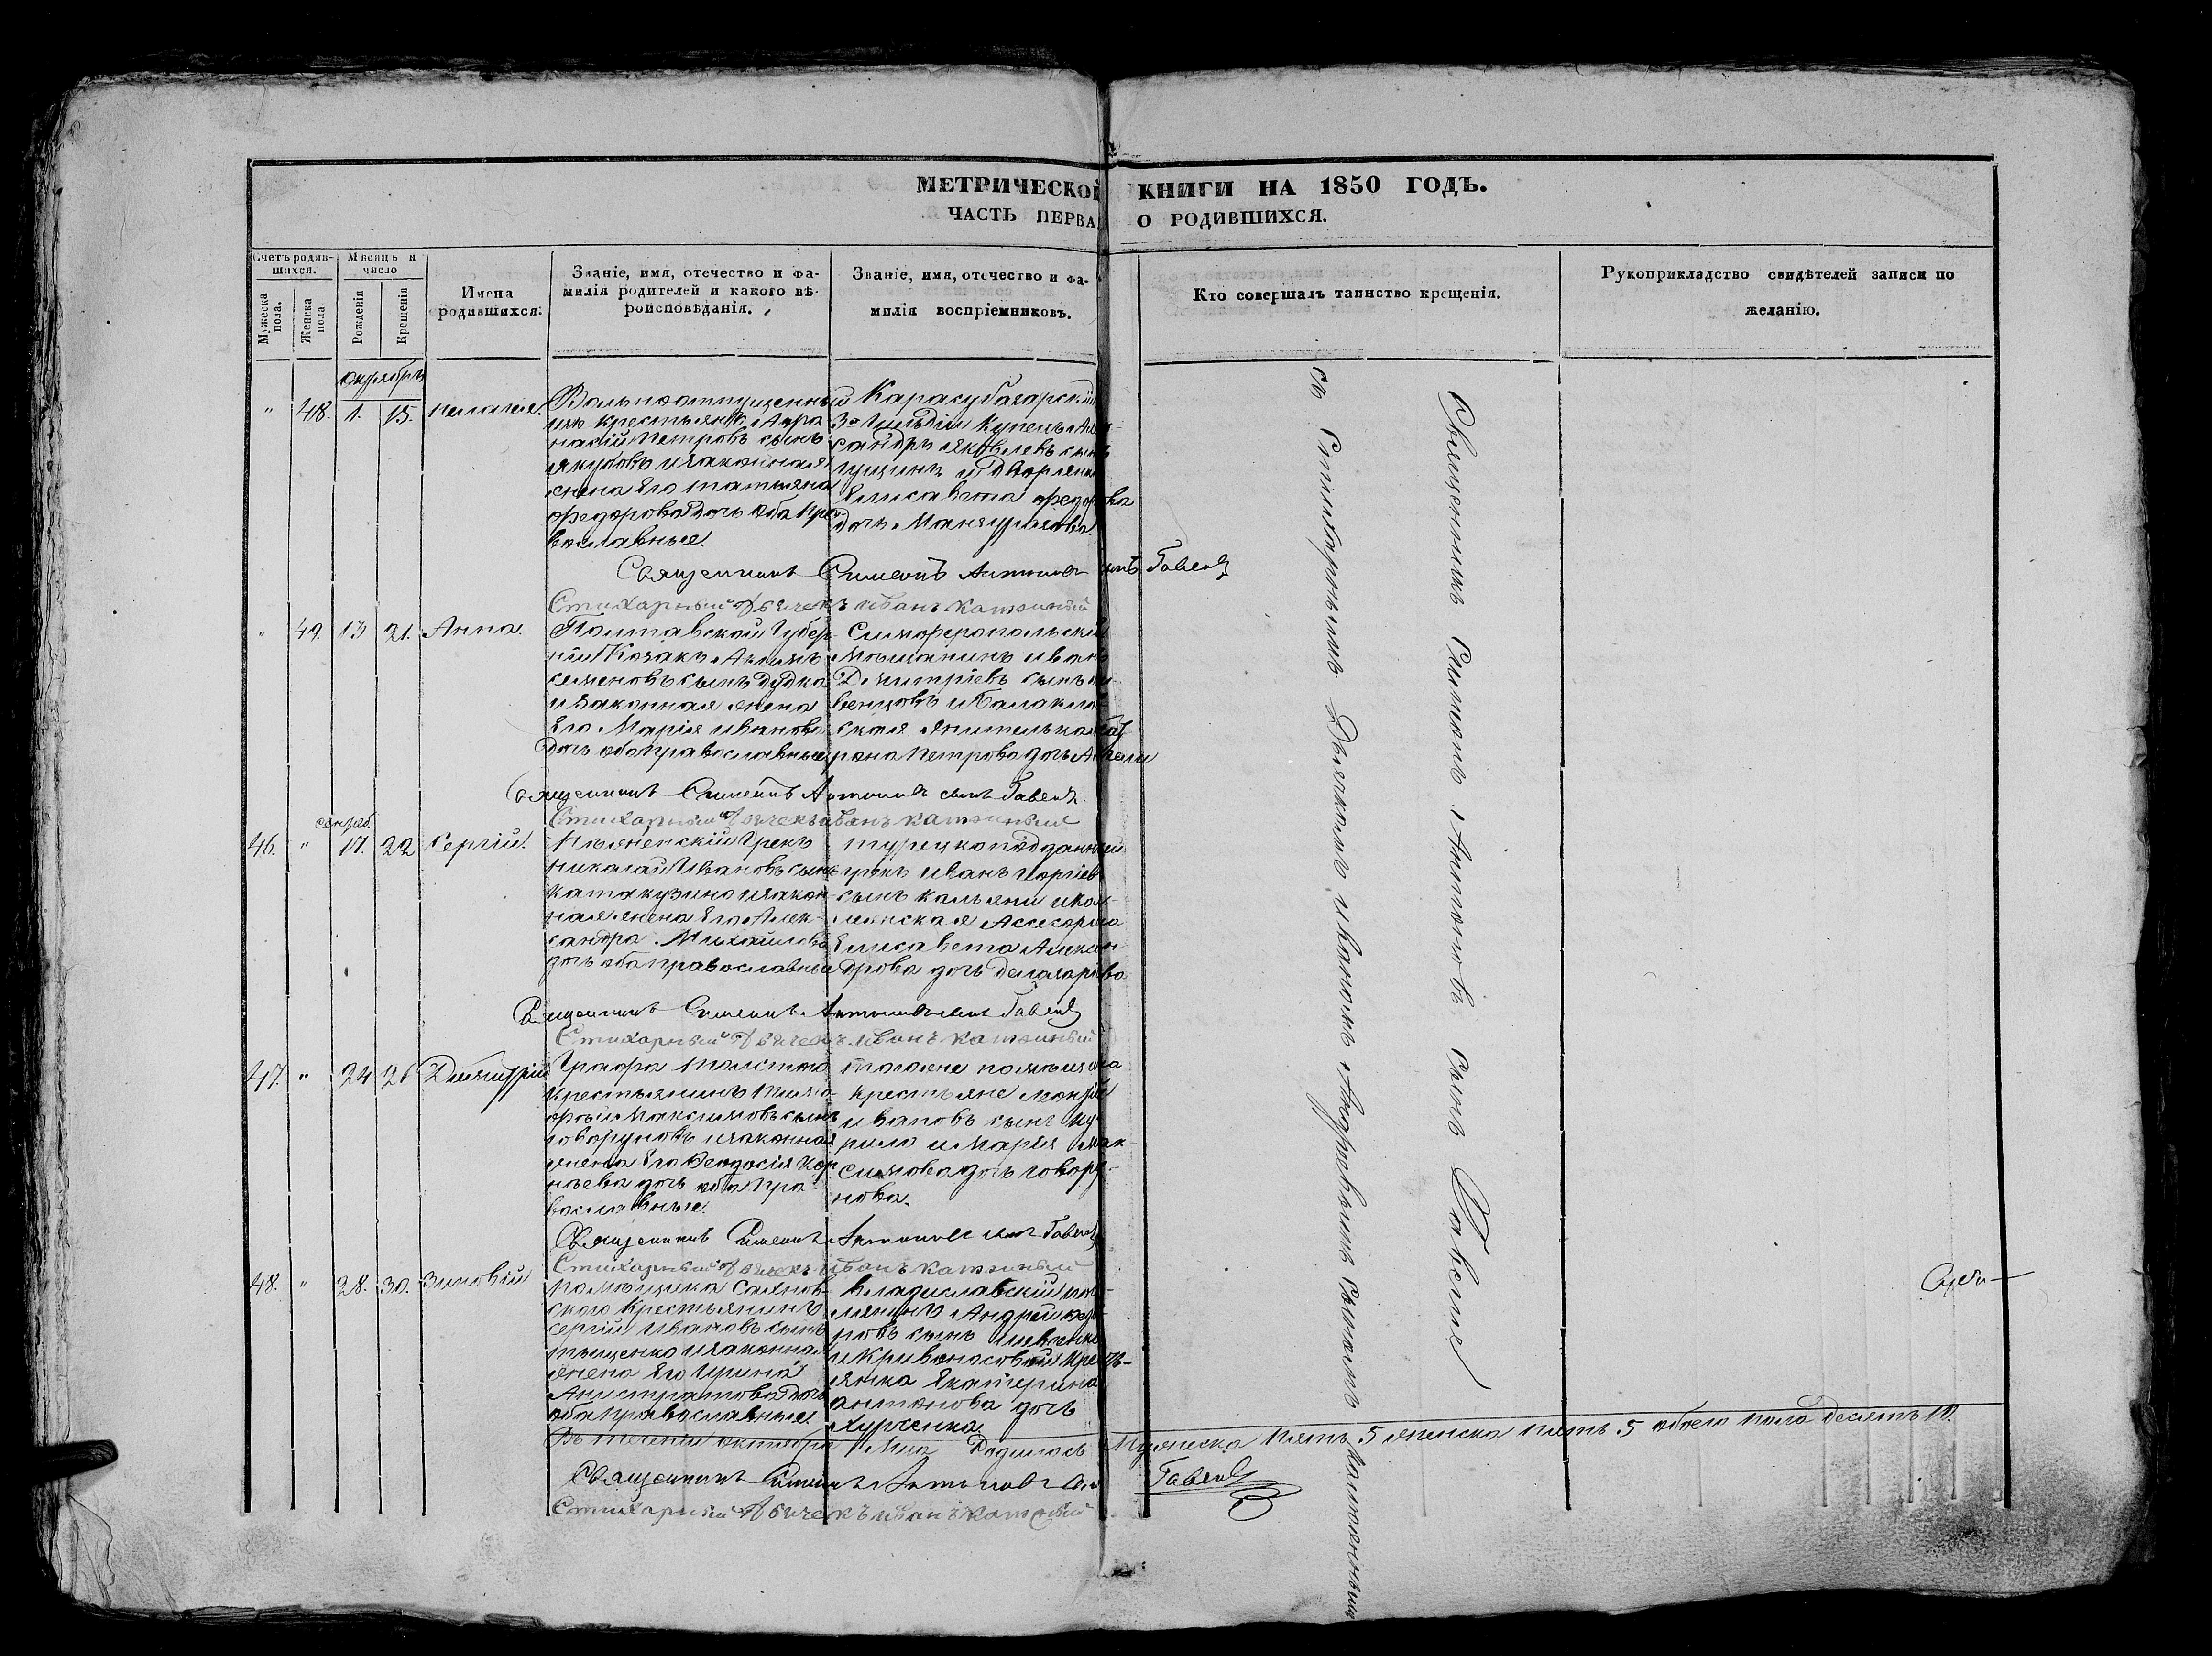 МЕТРИЧЕСКОЙ КНИГИ НА 1850 ГОДЪ.
ЧАСТЬ ПЕРВА О РОДИВШИХСЯ.
Счетъ родив-
шихся.
Мужеска пола.
Женска пола
Мѣсяцъ и
число
Рожденія
Крещенія
Имена
родившихся.
Званіе, имя, отечество и фа-
милія родителей и какого вѣ-
роисповѣданія.
Званіе, имя, отечество и фа-
милія воспріемниковъ.
Кто совершалъ таинство крещенія.
Рукоприкладство свидѣтелей записи по
желанію.
Октябрь
" 48. 1. 15. Пелагея.
Вольноотпущенный
крестьянинъ Афа
насій Петровъ сынъ
Якубовъ и законная
жена Его Татьяна
Федорова дочь оба Пра
вославные.
Карасубазарскій
3й Гильдіи Купецъ Алек
сандръ Яковлевъ сынъ
Гущинъ и Дворянка
Елисавета Федорова
дочь
Священникъ Симеонъ Антоновъ сынъ Гавель
Стихарный Дьячекъ Иванъ Катянный
" 49. 13 21. Анна.
Полтавской Губер
ніи Козакъ Акимъ
Семеновъ сынъ Дудка
и законная жена
Его Марія Иванова
дочь оба православные
Симферопольскій
Мѣщанинъ Иванъ
Димитріевъ сынъ
и Балакла
ская жителька
Петрова дочь
Священникъ Симеонъ Антоновъ сынъ Гавель
Стихарный Дьячекъ Иванъ Катянный
сентяб
46. " 17. 22 Сергій.
Нѣжинскій Грекъ
Николай Ивановъ сынъ
Катакузино и закон
ная жена Его Алек-
сандра Михайлова
дочь оба православные
Турецкоподданный
грекъ Иванъ Георгіев
сынъ Кальяни и Кол-
лежская Ассесорша
Елисавета Алексан
дрова дочь
Священникъ Симеонъ Антоновъ сынъ Гавель
Стихарный Дьячекъ Иванъ Катянный
47. " 24 26 Димитрій
Графа Толстого
крестьянинъ Тимо
фѣй Максимовъ сынъ
Говоруновъ и законная
жена Его Феодосія Кор
нѣева дочь оба Пра-
вославные.
тогоже помѣщика
крестьяне
Ивановъ сынъ Ку-
рило и Марія Мак-
симова дочь Говору-
нова.
Священникъ Симеонъ Антоновъ сынъ Гавель
Стихарный Дьячекъ Иванъ Катянный
48. " 28. 30. Зиновій
помѣщика
ского Крестьянинъ
Сергій Ивановъ сынъ
Тыщенко и законная
жена Его Ирина
дочь
оба Православные
Владиславскій
Андрей Федо
ровъ сынъ Шевченко
и Кресть-
янка Екатерина
Антонова дочь
Хурченка.
Въ теченіи октября Мца Родилось Мужеска пять 5 женска пять 5 обоего пола десять 10.
Священникъ Симеонъ Антоновъ сынъ Гавель
Стихарный Дьячекъ Иванъ Катянный
Священникъ Симеонъ Антоновъ сынъ Гавель
съ Стихарнымъ Дьячкомъ Иваномъ Андреевымъ сыномъ Катяннымъ